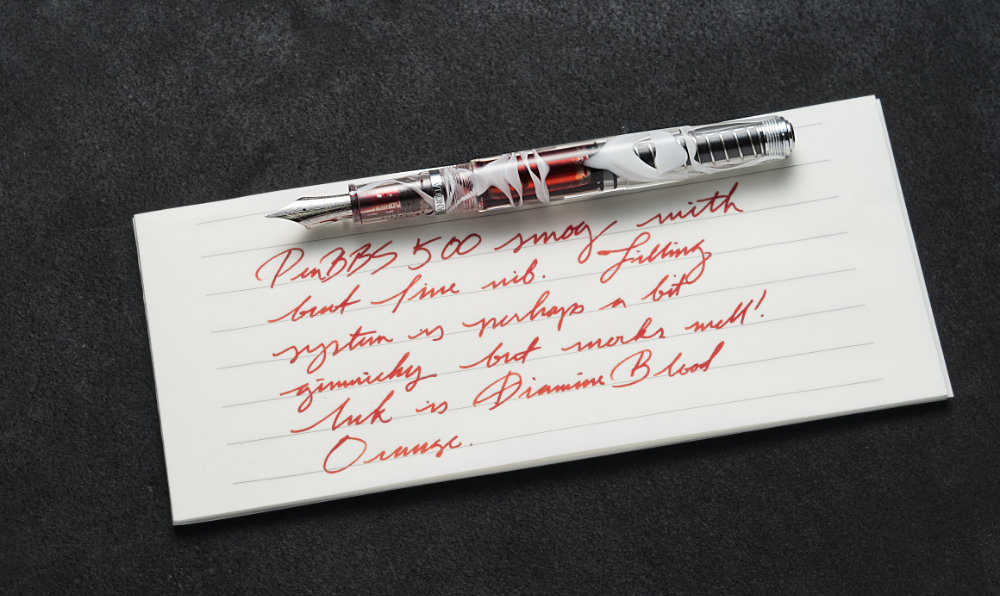 PenBBS 500 smog with
bent fine nib. Filling
system is perhaps a bit
gimmicky but works well!
Ink is Diamine Blood
Orange.